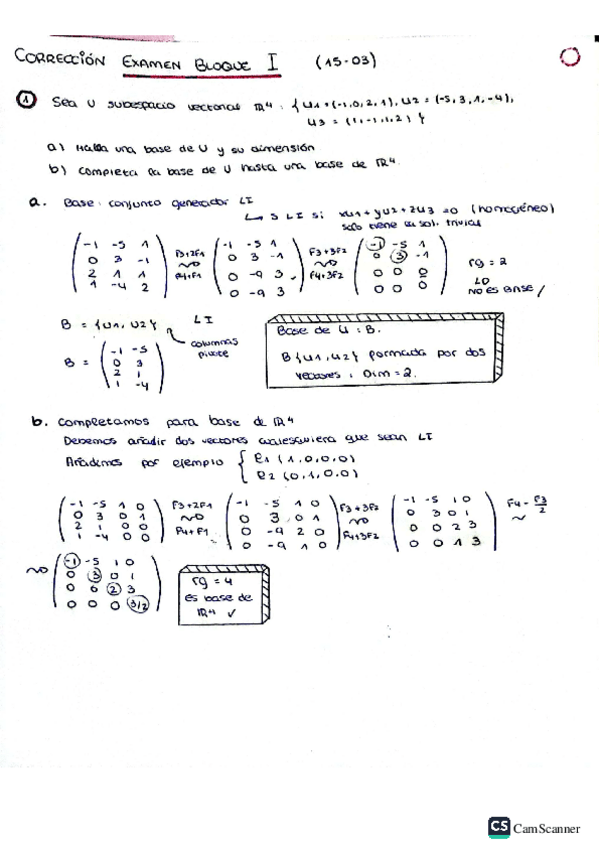 CORRECCIÓN EXAMEN BLOQUE I (15-03)
① Sea U subespacio vectorial ℝ⁴ : { U1 = (-1,0,2,1), U2 = (-5,3,1,-4),
U3 = (1,-1,1,2) }
a) Halla una base de U y su dimensión
b) Completa la base de U hasta una base de ℝ⁴.
a. Base: conjunto generador LI
↳ S LI si xu1 + yu2 + zu3 = 0 (homogéneo)
solo tiene su sol. trivial
-1 -5 1 F3+2F1 -1 -5 1 F3+3F2 -1 -5 1
0 3 -1 ~ 0 3 -1 ~ 0 3 -1 rg = 2
2 1 1 F4+F1 0 -9 3 F4+3F2 0 0 0
1 -4 2 0 -9 3 0 0 0 NO ES BASE
B = {U1, U2} LI
columnas
pivote
B = -1 -5
0 3
2 1
1 -4
Base de U : B.
B{U1, U2} formada por dos
vectores : Dim = 2.
b. Completamos para base de ℝ⁴
Debemos añadir dos vectores cualesquiera que sean LI
Añadimos por ejemplo { e1 (1,0,0,0)
e2 (0,1,0,0)
-1 -5 1 0 F3+2F1 -1 -5 1 0 F3+3F2 -1 -5 1 0 F4 - F3/2
0 3 0 1 ~ 0 3 0 1 ~ 0 3 0 1 ~
2 1 0 0 F4+F1 0 -9 2 0 F4+3F2 0 0 2 3
1 -4 0 0 0 -9 1 0 0 0 1 3
~ -1 -5 1 0
0 3 0 1
0 0 2 3
0 0 0 3/2
rg = 4
es base de
ℝ⁴ ✓
CS CamScanner